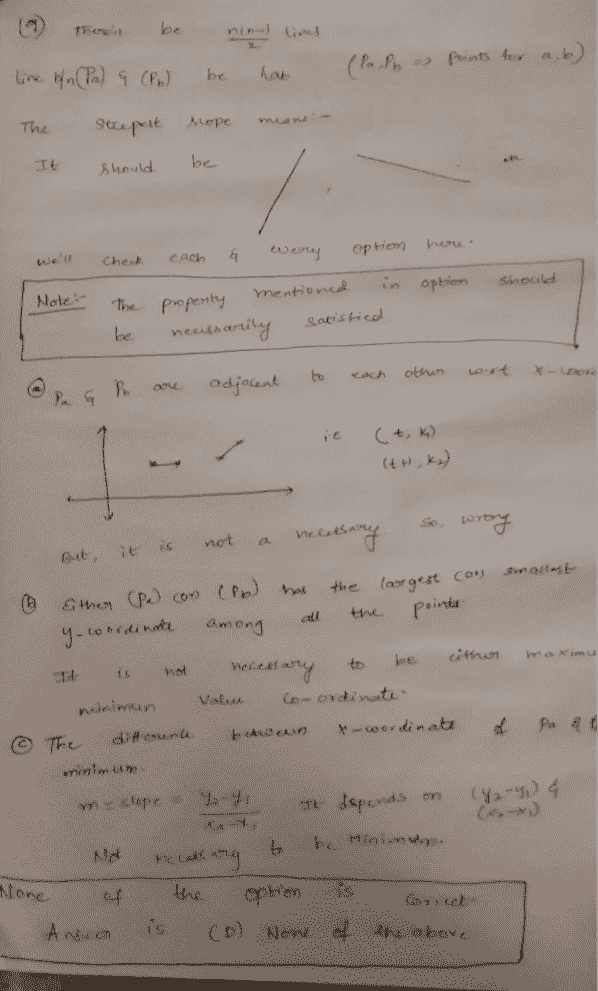 (9) There's be n(n-1)/2 lines
line b/n (Pa) & (Pb) be hab (Pa, Pb => Points for a, b)
The steepest slope means:-
It should be
we'll check each & every option here.
Note:- The property mentioned in option should
be necessarily satisfied
(a) Pa & Pb are adjacent to each other w.r.t x-coor
i.e (t, k1)
(t+1, k2)
But, it is not a necessary so, wrong
(b) Either (Pa) (or) (Pb) has the largest (or) smallest
y-coordinate among all the points
It is not necessary to be either maximu
minimum value co-ordinate.
(c) The difference between x-coordinate of Pa &
minimum.
m = slope = y2-y1 / x2-x1 It depends on (y2-y1) &
(x2-x1)
Not necessary to be Minimum.
None of the option is correct
Answer is (D) None of the above